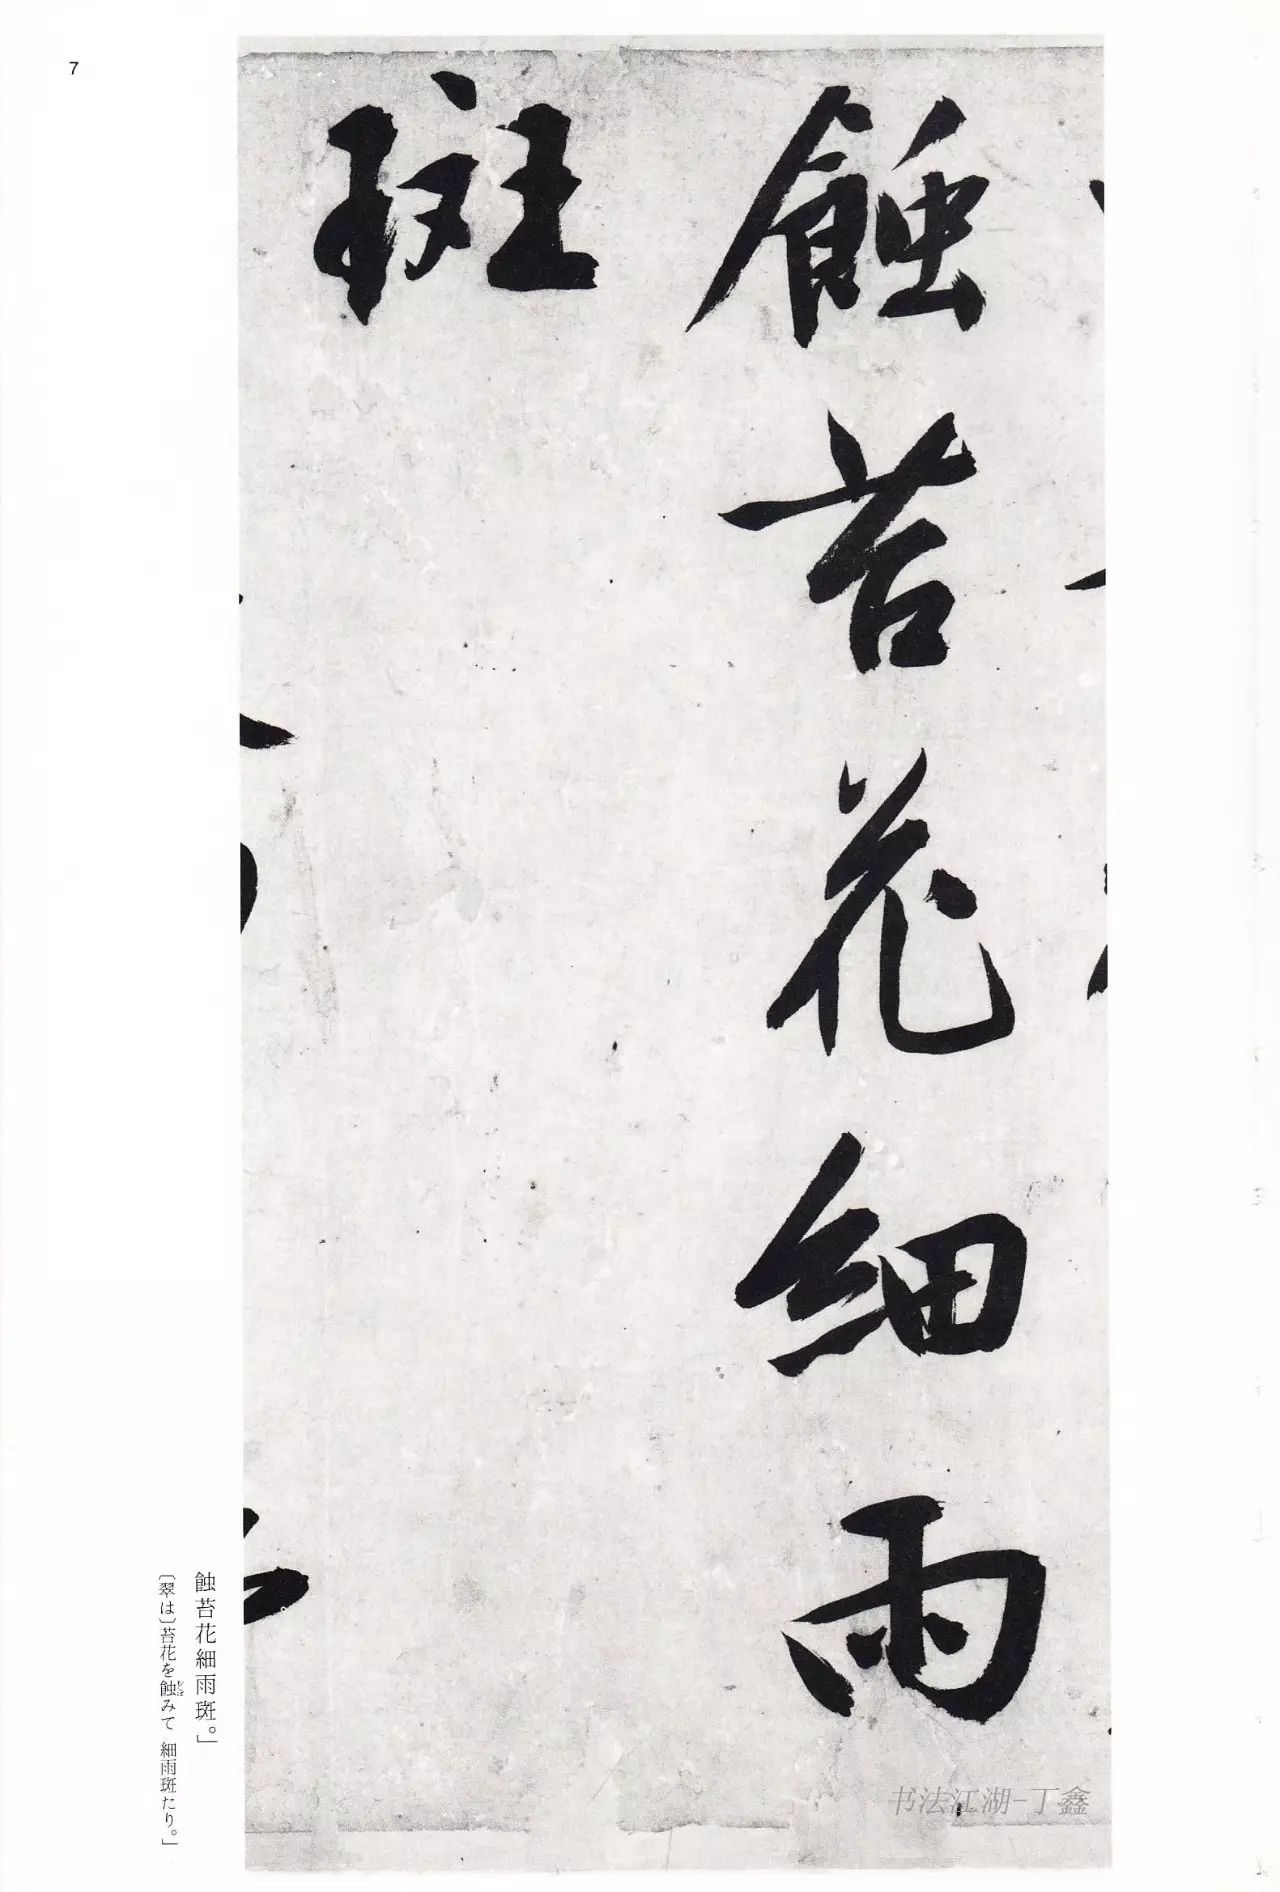 7
蝕苔花細雨
斑
蝕苔花細雨斑。」
〔翠は〕苔花を蝕みて 細雨斑たり。」
むしば
书法江湖-丁鑫